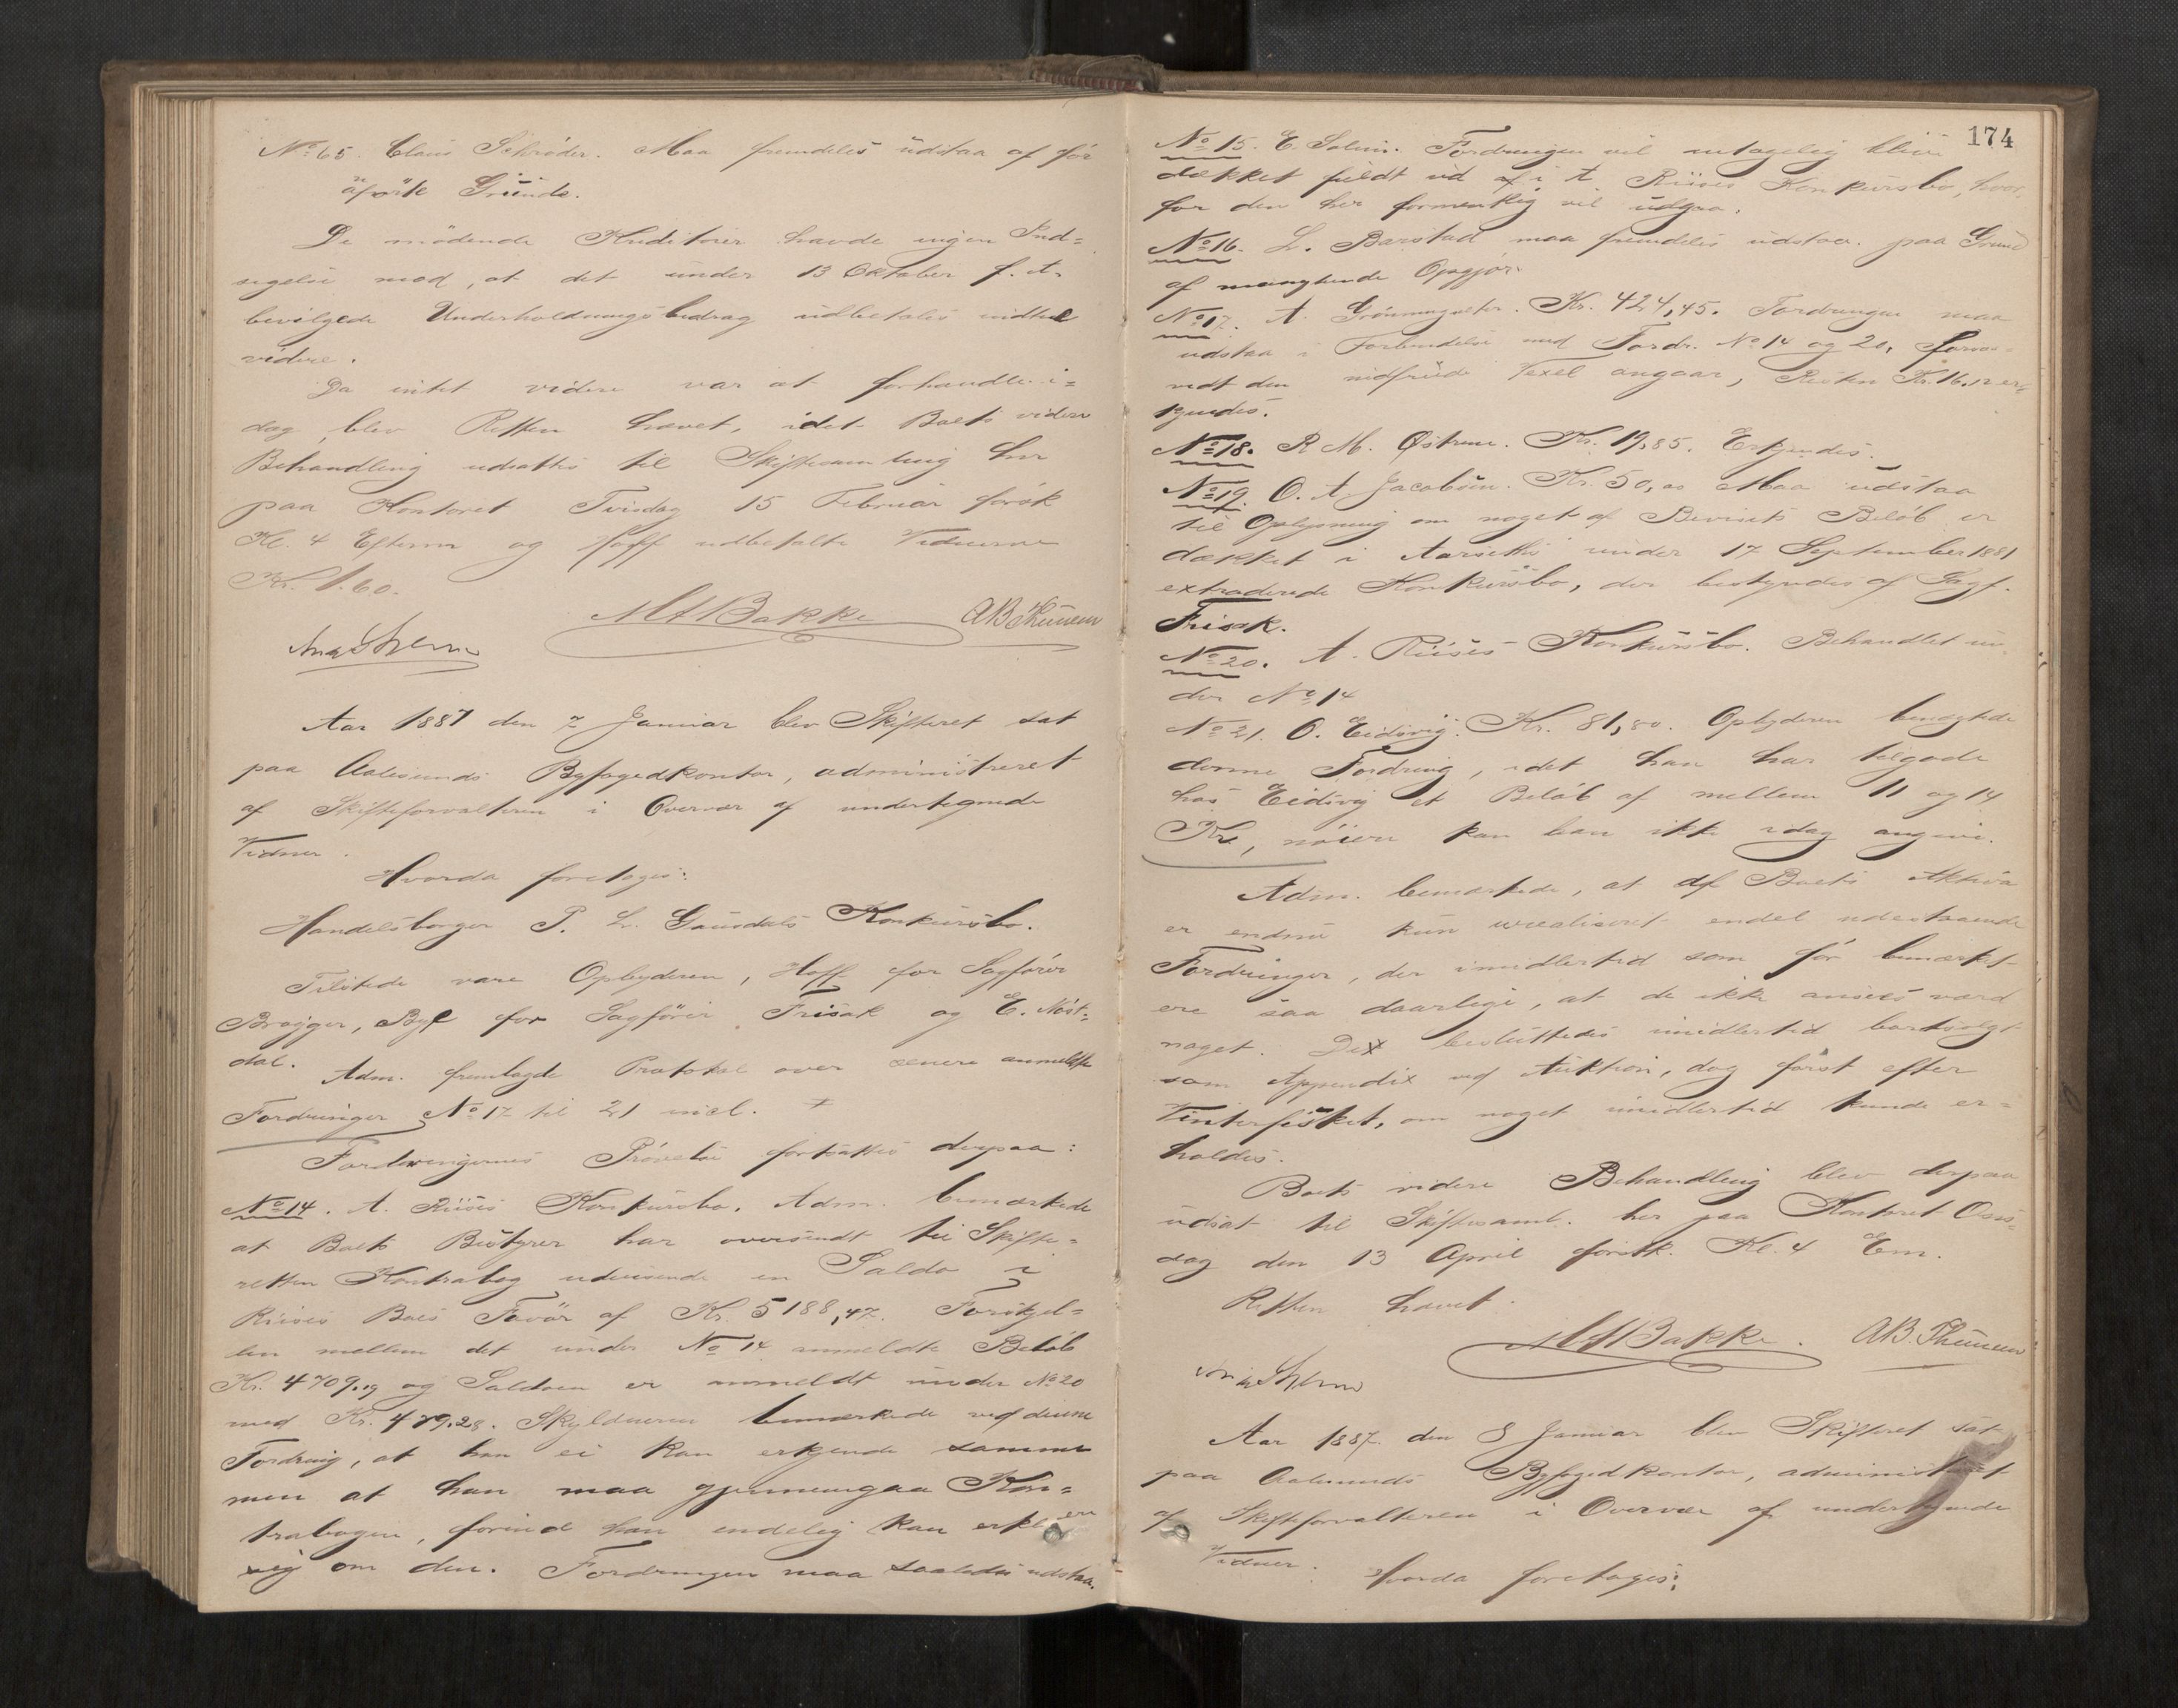 No 65. Claus Schröder. Maa fremdeles udstaa af før
anførte Grunde.
De mødende Kreditorer havde ingen Ind=
sigelse mod, at det under 13 Oktober f. A.
bevilgede Underholdningsbidrag udbetales indtil
videre.
Da intet videre var at forhandle i=
dag, blev Retten hævet, idet Boets videre
Behandling udsattes til Skiftesamling her
paa Kontoret Tirsdag 15 Februar førstk
Kl. 4 Efterm og Hoff udbetalte Vidnerne
Kr. 1.60.
M A Bakke A B Thuneem
Aar 1887 den 7 Januar blev Skifteret sat
paa Aalesunds Byfogedkontor, administreret
af Skifteforvalteren i Overvær af undertegnede
Vidner.
Hvorda foretoges:
Handelsborger P. L. Gausdals Konkursbo.
Tilstede vare Opbyderen, Hoff for Sagfører
Brøgger, Byf for Sagfører Frisak og E. Nost=
dal.
Adm. fremlagde Protokol over senere anmeldte
Fordringer No 17 til 21 incl.
Fordringernes Prøvelse fortsattes derpaa:
No 14. A. Riises Konkursbo. Adm. bemærkede
at Boets Bestyrer har oversendt til Skifte=
retten Kontrabog udvisende en Saldo i
Riises Boes Favør af Kr. 5188,47. Forskjel=
len mellem det under No 14 anmeldte Beløb
Kr. 4709.19 og Saldoen er anmeldt under No 20
med Kr. 479.28. Skyldneren bemærkede ved denne
Fordring, at han ei kan erkjende samme
men at han maa gjennemgaa Kon=
trabogen, forind han endelig kan erklære
sig om den. Fordringen maa saaledes udstaa.
174
No 15. E. Solem. Fordringen vil antagelig blive
dækket fuldt ud i A Riises Konkursbo, hvor
for den her formentlig vil udgaa.
No 16. L. Barstad maa fremdeles udstaa paa Grund
af manglende Opgjør.
No 17. A. Grönningsæter. Kr. 424,45. Fordringen maa
udstaa i Forbindelse med Fordr. No 14 og 20, forsaa=
vidt den Vexel angaar, Resten Kr. 16.12 er=
kjendes.
No 18. R M. Østrem. Kr. 19,85. Erkjendes.
No 19. O. A. Jacobsen. Kr. 50,00 Maa udstaa
til Oplysning om noget af Bevisets Beløb er
dækket i Aarseths under 17 September 1881
extraderede Konkursbo, der bestyredes af Sagf.
Frisak.
No 20. A. Riises Konkursbo. Behandlet un
der No 14
No 21. O. Eidsvig. Kr. 81,80. Opbyderen benægtede
denne Fordring, idet han har tilgode
hos Eidsvig et Beløb af mellem 11 og 14
Kr, nøiere kan han ikke idag angive.
Adm. bemærkede, at af Boets Aktiva
er endnu kun urealiseret endel udestaaende
Fordringer, der imidlertid som før bemærket
ere saa daarlige, at de ikke ansees værd
noget. Det besluttedes imidlertid bortsolgt
som Appendix ved Auktion, dog først efter
Vinterfisket, om noget imidlertid kunde er=
holdes.
Boets videre Behandling blev derpaa
udsat til Skiftesaml. her paa Kontoret Ons=
dag den 13 April førstk. Kl. 4 Em.
Retten hævet.
M A Bakke. A B. Thuneem
Aar 1887 den 8 Januar blev Skifteret sat
paa Aalesunds Byfogedkontor, administreret
af Skifteforvalteren i Overvær af undertegnede
Vidner.
Hvorda foretoges: